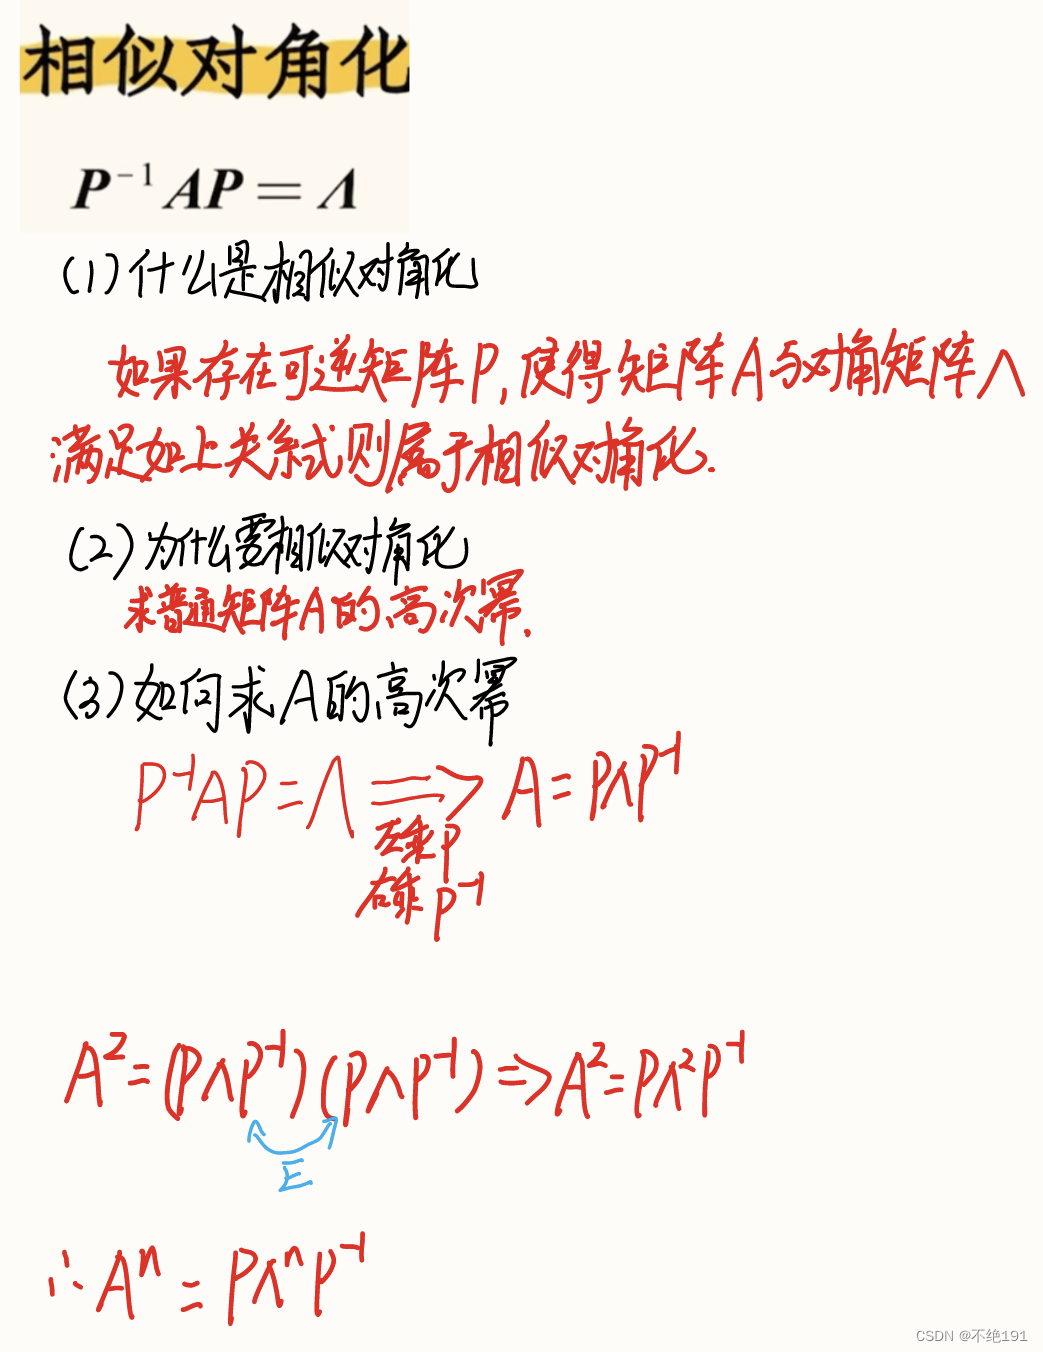 相似对角化
P⁻¹AP=Λ
(1)什么是相似对角化
如果存在可逆矩阵P,使得矩阵A与对角矩阵Λ
满足如上关系式则属于相似对角化.
(2)为什么要相似对角化
求普通矩阵A的高次幂.
(3)如何求A的高次幂
P⁻¹AP=Λ ⟹ A=PΛP⁻¹
左乘P
右乘P⁻¹
A²=(PΛP⁻¹)(PΛP⁻¹)⇒A²=PΛ²P⁻¹
E
∴Aⁿ=PΛⁿP⁻¹
CSDN @不绝191